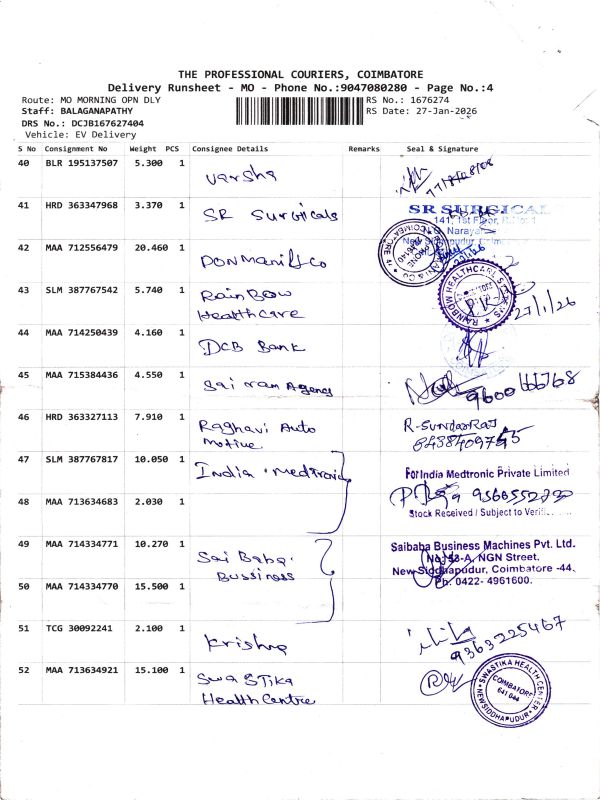 THE PROFESSIONAL COURIERS, COIMBATORE
Delivery Runsheet - MO - Phone No.:9047080280 - Page No.:4
Route: MO MORNING OPN DLY RS No.: 1676274
Staff: BALAGANAPATHY RS Date: 27-Jan-2026
DRS No.: DCJB167627404
Vehicle: EV Delivery
S No Consignment No Weight PCS Consignee Details Remarks Seal & Signature
40 BLR 195137507 5.300 1 Varsha
41 HRD 363347968 3.370 1 SR Surgicals SR SURGICAL
141, 1st Floor,
N.G. Narayan
New Siddhapudur, Coim
42 MAA 712556479 20.460 1 DON Mani & Co
43 SLM 387767542 5.740 1 RainBow RAINBOW HEALTHCARE
Healthcare 27/1/26
44 MAA 714250439 4.160 1 DCB Bank
45 MAA 715384436 4.550 1 Sai ram Agency
46 HRD 363327113 7.910 1 Raghavi Auto R-SUNDARRAJ
motive
47 SLM 387767817 10.050 1 India medtronic For India Medtronic Private Limited
48 MAA 713634683 2.030 1
Stock Received / Subject to
49 MAA 714334771 10.270 1 Sai Baba Saibaba Business Machines Pvt. Ltd.
Bussiness No:53-A, NGN Street,
New Siddhapudur, Coimbatore -44.
Ph. 0422- 4961600.
50 MAA 714334770 15.500 1
51 TCG 30092241 2.100 1 Krishna
9363225467
52 MAA 713634921 15.100 1 SwaSTika SWASTIKA HEALTH CENTER
Health Centre COIMBATORE
641 044
NEWSIDDHAPUDUR